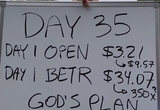 DAY 35
DAY 1 OPEN $3.21
↳$9.57
DAY 1 BETR $34.07
↳350%
GOD'S PLAN